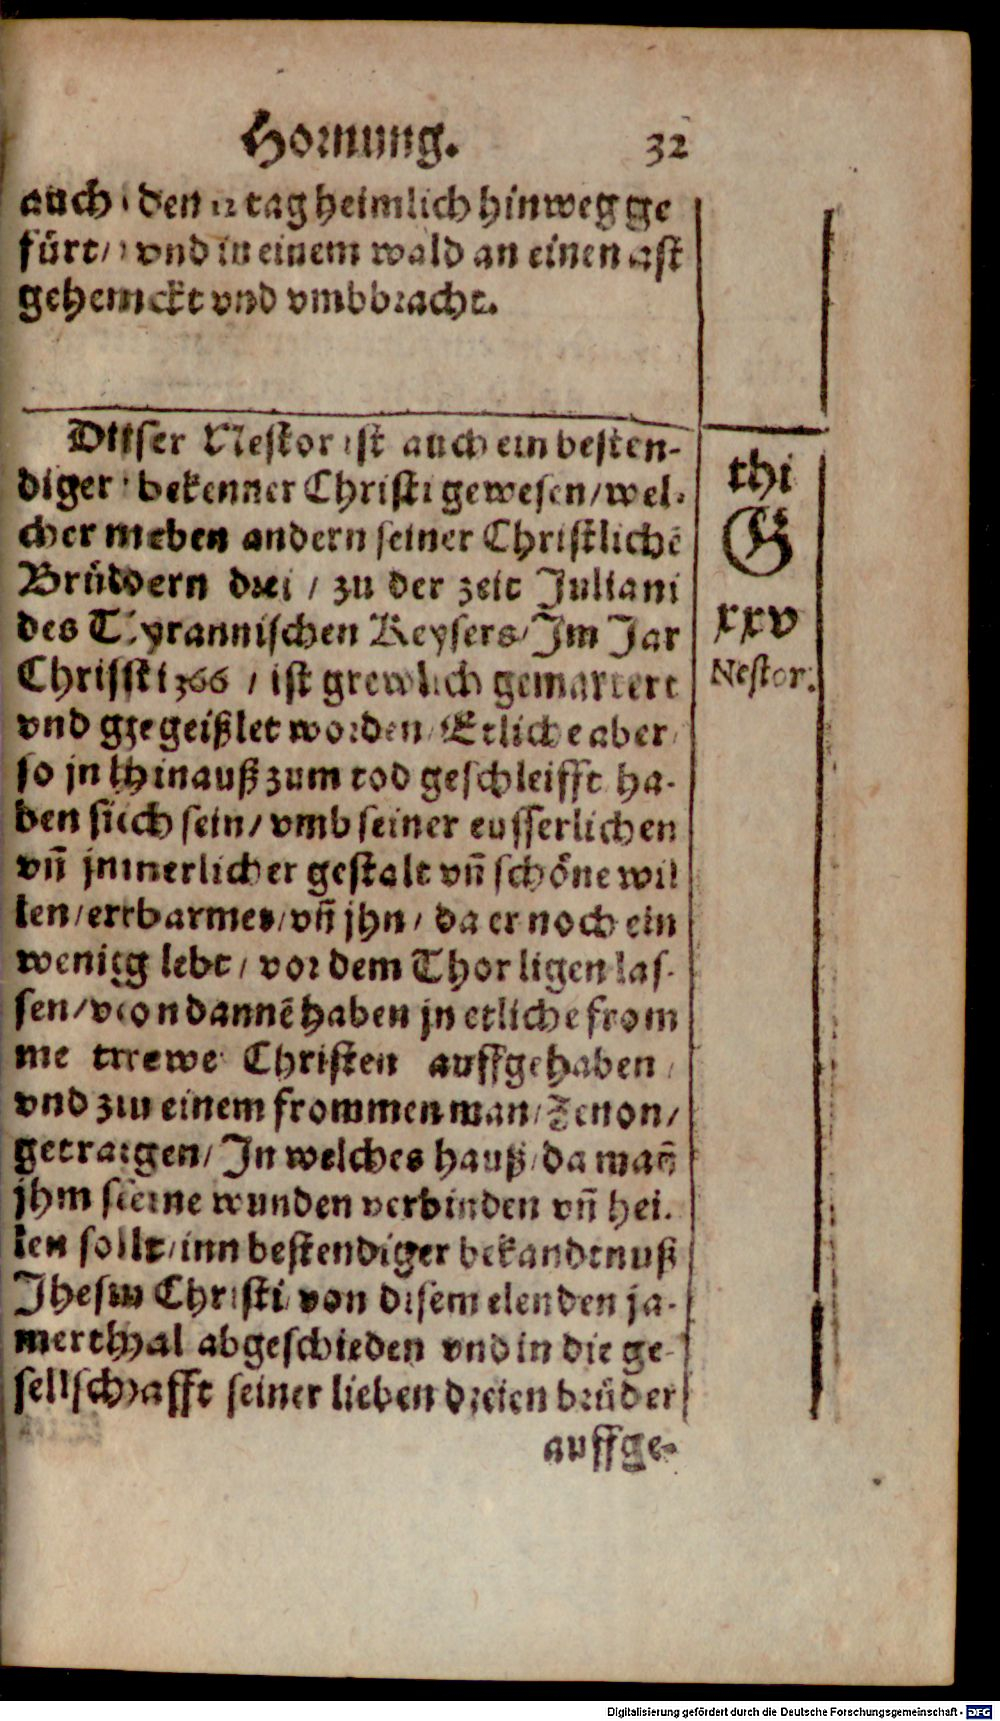 Hornung. 32
auch den 12 tag heimlich hinweg ge
fürt/ vnd in einem wald an einen ast
gehenckt vnd vmbbracht.
Diser Nestor ist auch ein besten-
diger bekenner Christi gewesen/ wel-
cher neben andern seiner Christlichē
Brüdern drei / zu der zeit Juliani
des Tyrannischen Keysers/ Im Jar
Christi 366 / ist grewlich gemartert
vnd gegeißlet worden/ Etliche aber/
so jn hinauß zum tod geschleifft ha-
ben sich sein/ vmb seiner eusserlichen
vñ jnnerlicher gestalt vñ schöne wil
len/ erbarmet/ vñ jhn/ da er noch ein
wenig lebt/ vor dem Thor ligen las-
sen/ von dannē haben jn etliche from
me trewe Christen auffgehaben/
vnd zu einem frommen man/ Zenon/
getragen/ In welches hauß/ da mañ
jhm seine wunden verbinden vñ hei-
len sollt/ inn bestendiger bekandtnuß
Jhesu Christi von disem elenden ja-
merthal abgeschieden vnd in die ge-
sellschafft seiner lieben dreien brüder
auffge-
thi
G
xxv
Nestor.
Digitalisierung gefördert durch die Deutsche Forschungsgemeinschaft - DFG